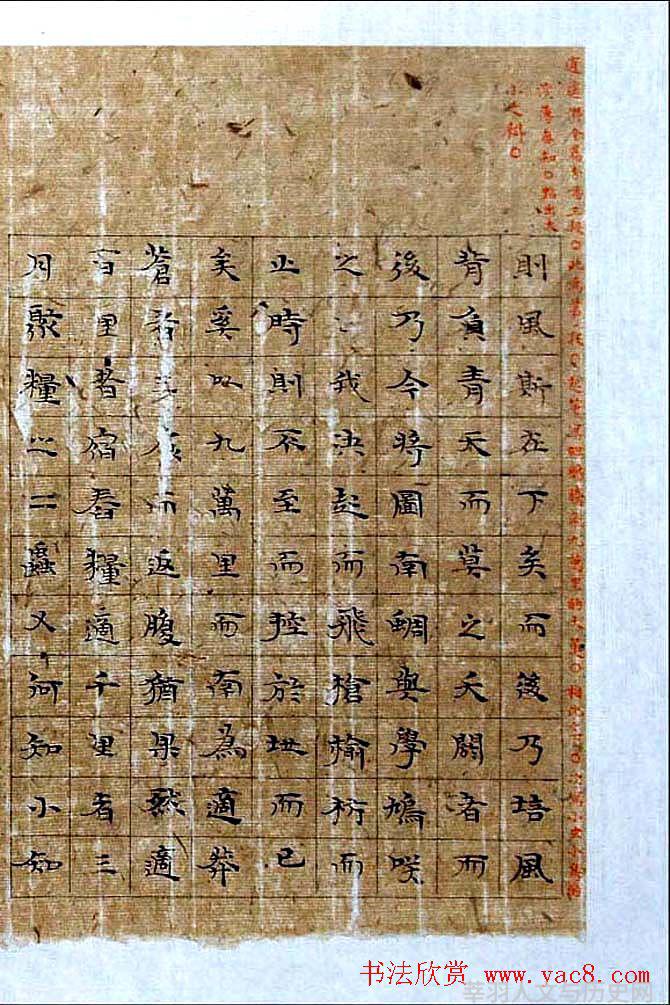 小之辯。
則風斯在下矣而後乃培風
背負青天而莫之夭閼者而
後乃今將圖南蜩與學鳩咲
之我決起而飛槍榆枋而
止時則不至而控於地而已
矣奚以九萬里而南為適莽
蒼者而返腹猶果然適
百里者宿舂糧適千里者三
月聚糧之二蟲又何知小知
书法欣赏 www.yac8.com
羽人文与历史网